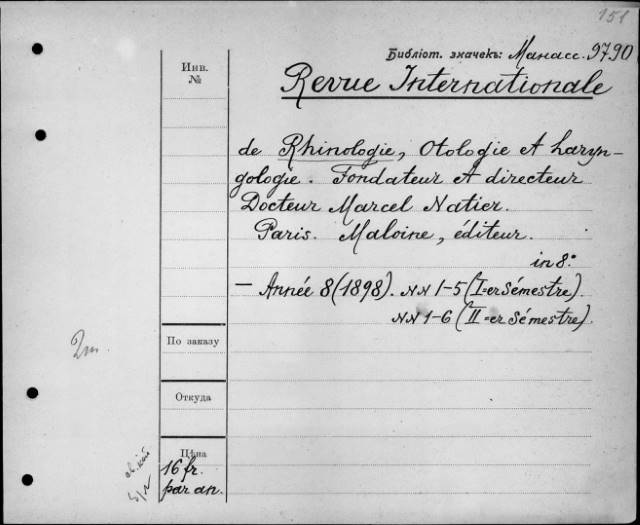 151
Библіот. значекъ: Манасс. 9790
Инв.
№
Revue Internationale
de Rhinologie, Otologie et Laryn-
gologie. Fondateur et directeur
Docteur Marcel Natier.
Paris. Maloine, éditeur.
in 8.°
— Année 8 (1898). NN 1-5 (I=er Sémestre).
NN 1-6 (II=er Sémestre).
По заказу
Откуда
Цѣна
16 fr.
par an.